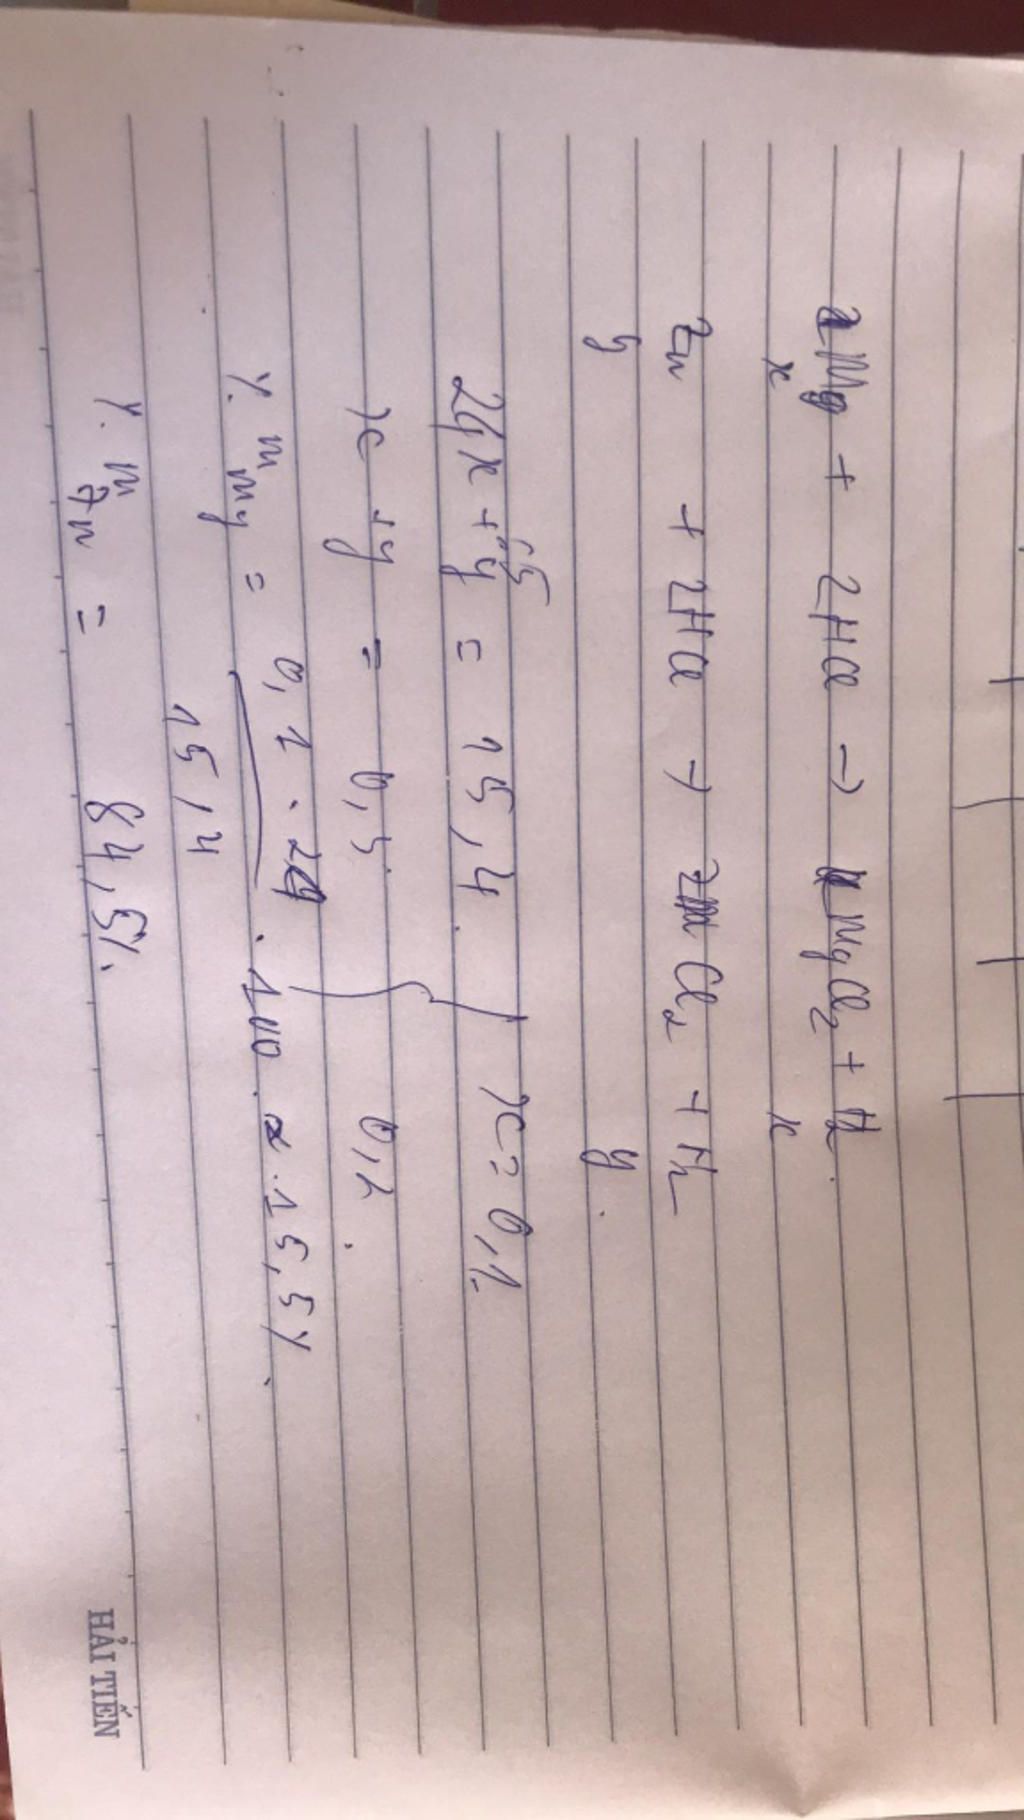 Mg + 2HCl → MgCl₂ + H₂.
x x
Zn + 2HCl → ZnCl₂ + H₂
y y.
24x + 65y = 15,4. } x = 0,1
x + y = 0,3. 0,2.
% m Mg = 0,1 . 24 / 15,4 . 100 ≈ 15,5%.
% m Zn = 84,5%.
HẢI TIẾN